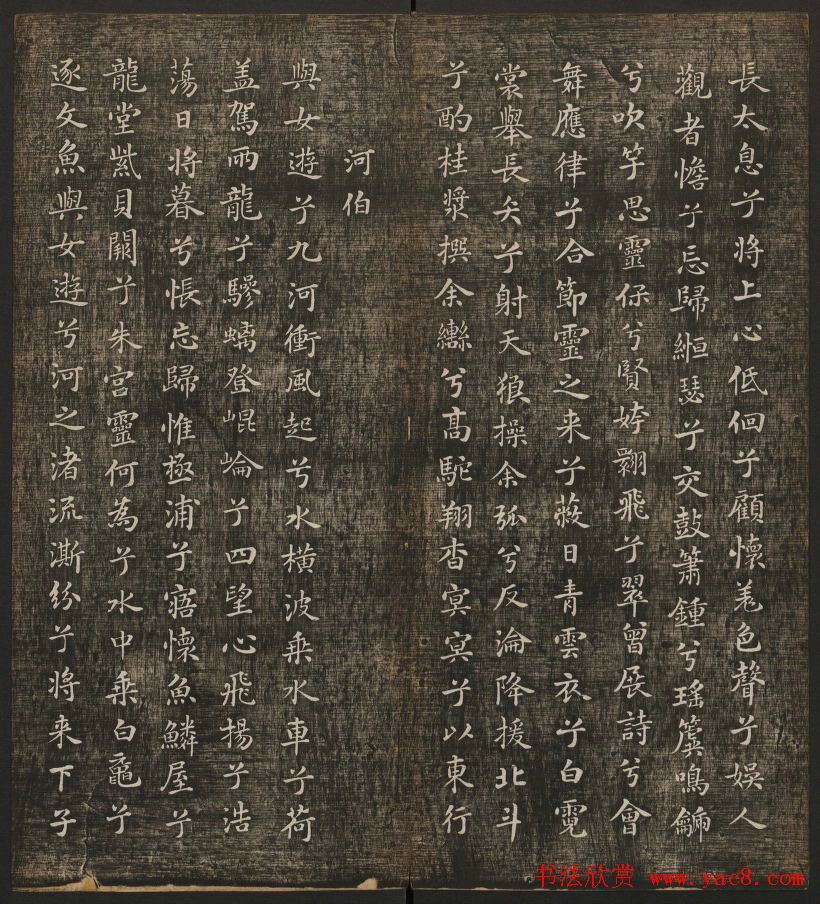 長太息兮將上心低佪兮顧懷羌色聲兮娛人
觀者憺兮忘歸縆瑟兮交鼓簫鍾兮瑤簴鳴䶵
兮吹竽思靈保兮賢姱翾飛兮翠曾展詩兮會
舞應律兮合節靈之来兮蔽日青雲衣兮白霓
裳舉長矢兮射天狼操余弧兮反淪降援北斗
兮酌桂漿撰余轡兮高駝翔杳冥冥兮以東行
河伯
與女遊兮九河衝風起兮水橫波乗水車兮荷
盖駕兩龍兮驂螭登崐崘兮四望心飛揚兮浩
蕩日將暮兮悵忘歸惟極浦兮寤懷魚鱗屋兮
龍堂紫貝闕兮朱宮靈何為兮水中乗白黿兮
逐文魚與女遊兮河之渚流澌紛兮將来下子
书法欣赏 www.yac8.com